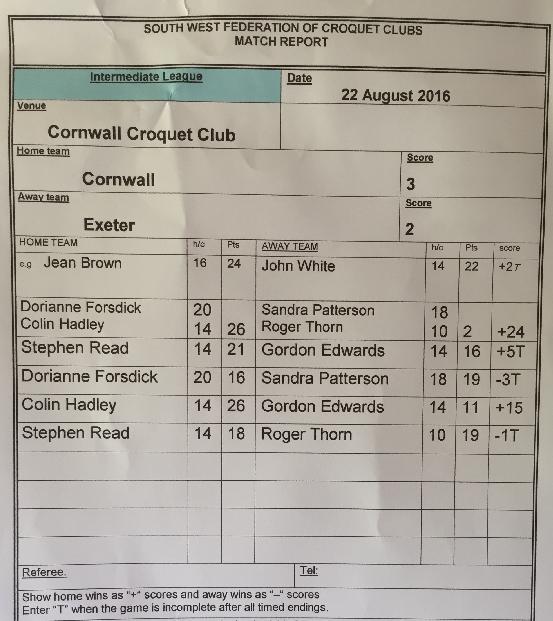 SOUTH WEST FEDERATION OF CROQUET CLUBS
MATCH REPORT
Intermediate League
Date
22 August 2016
Venue
Cornwall Croquet Club
Home team
Score
Cornwall
3
Away team
Score
Exeter
2
HOME TEAM h/c Pts AWAY TEAM h/c Pts score
e.g Jean Brown 16 24 John White 14 22 +2T
Dorianne Forsdick 20 Sandra Patterson 18
Colin Hadley 14 26 Roger Thorn 10 2 +24
Stephen Read 14 21 Gordon Edwards 14 16 +5T
Dorianne Forsdick 20 16 Sandra Patterson 18 19 -3T
Colin Hadley 14 26 Gordon Edwards 14 11 +15
Stephen Read 14 18 Roger Thorn 10 19 -1T
Referee. Tel:
Show home wins as "+" scores and away wins as "–" scores
Enter "T" when the game is incomplete after all timed endings.